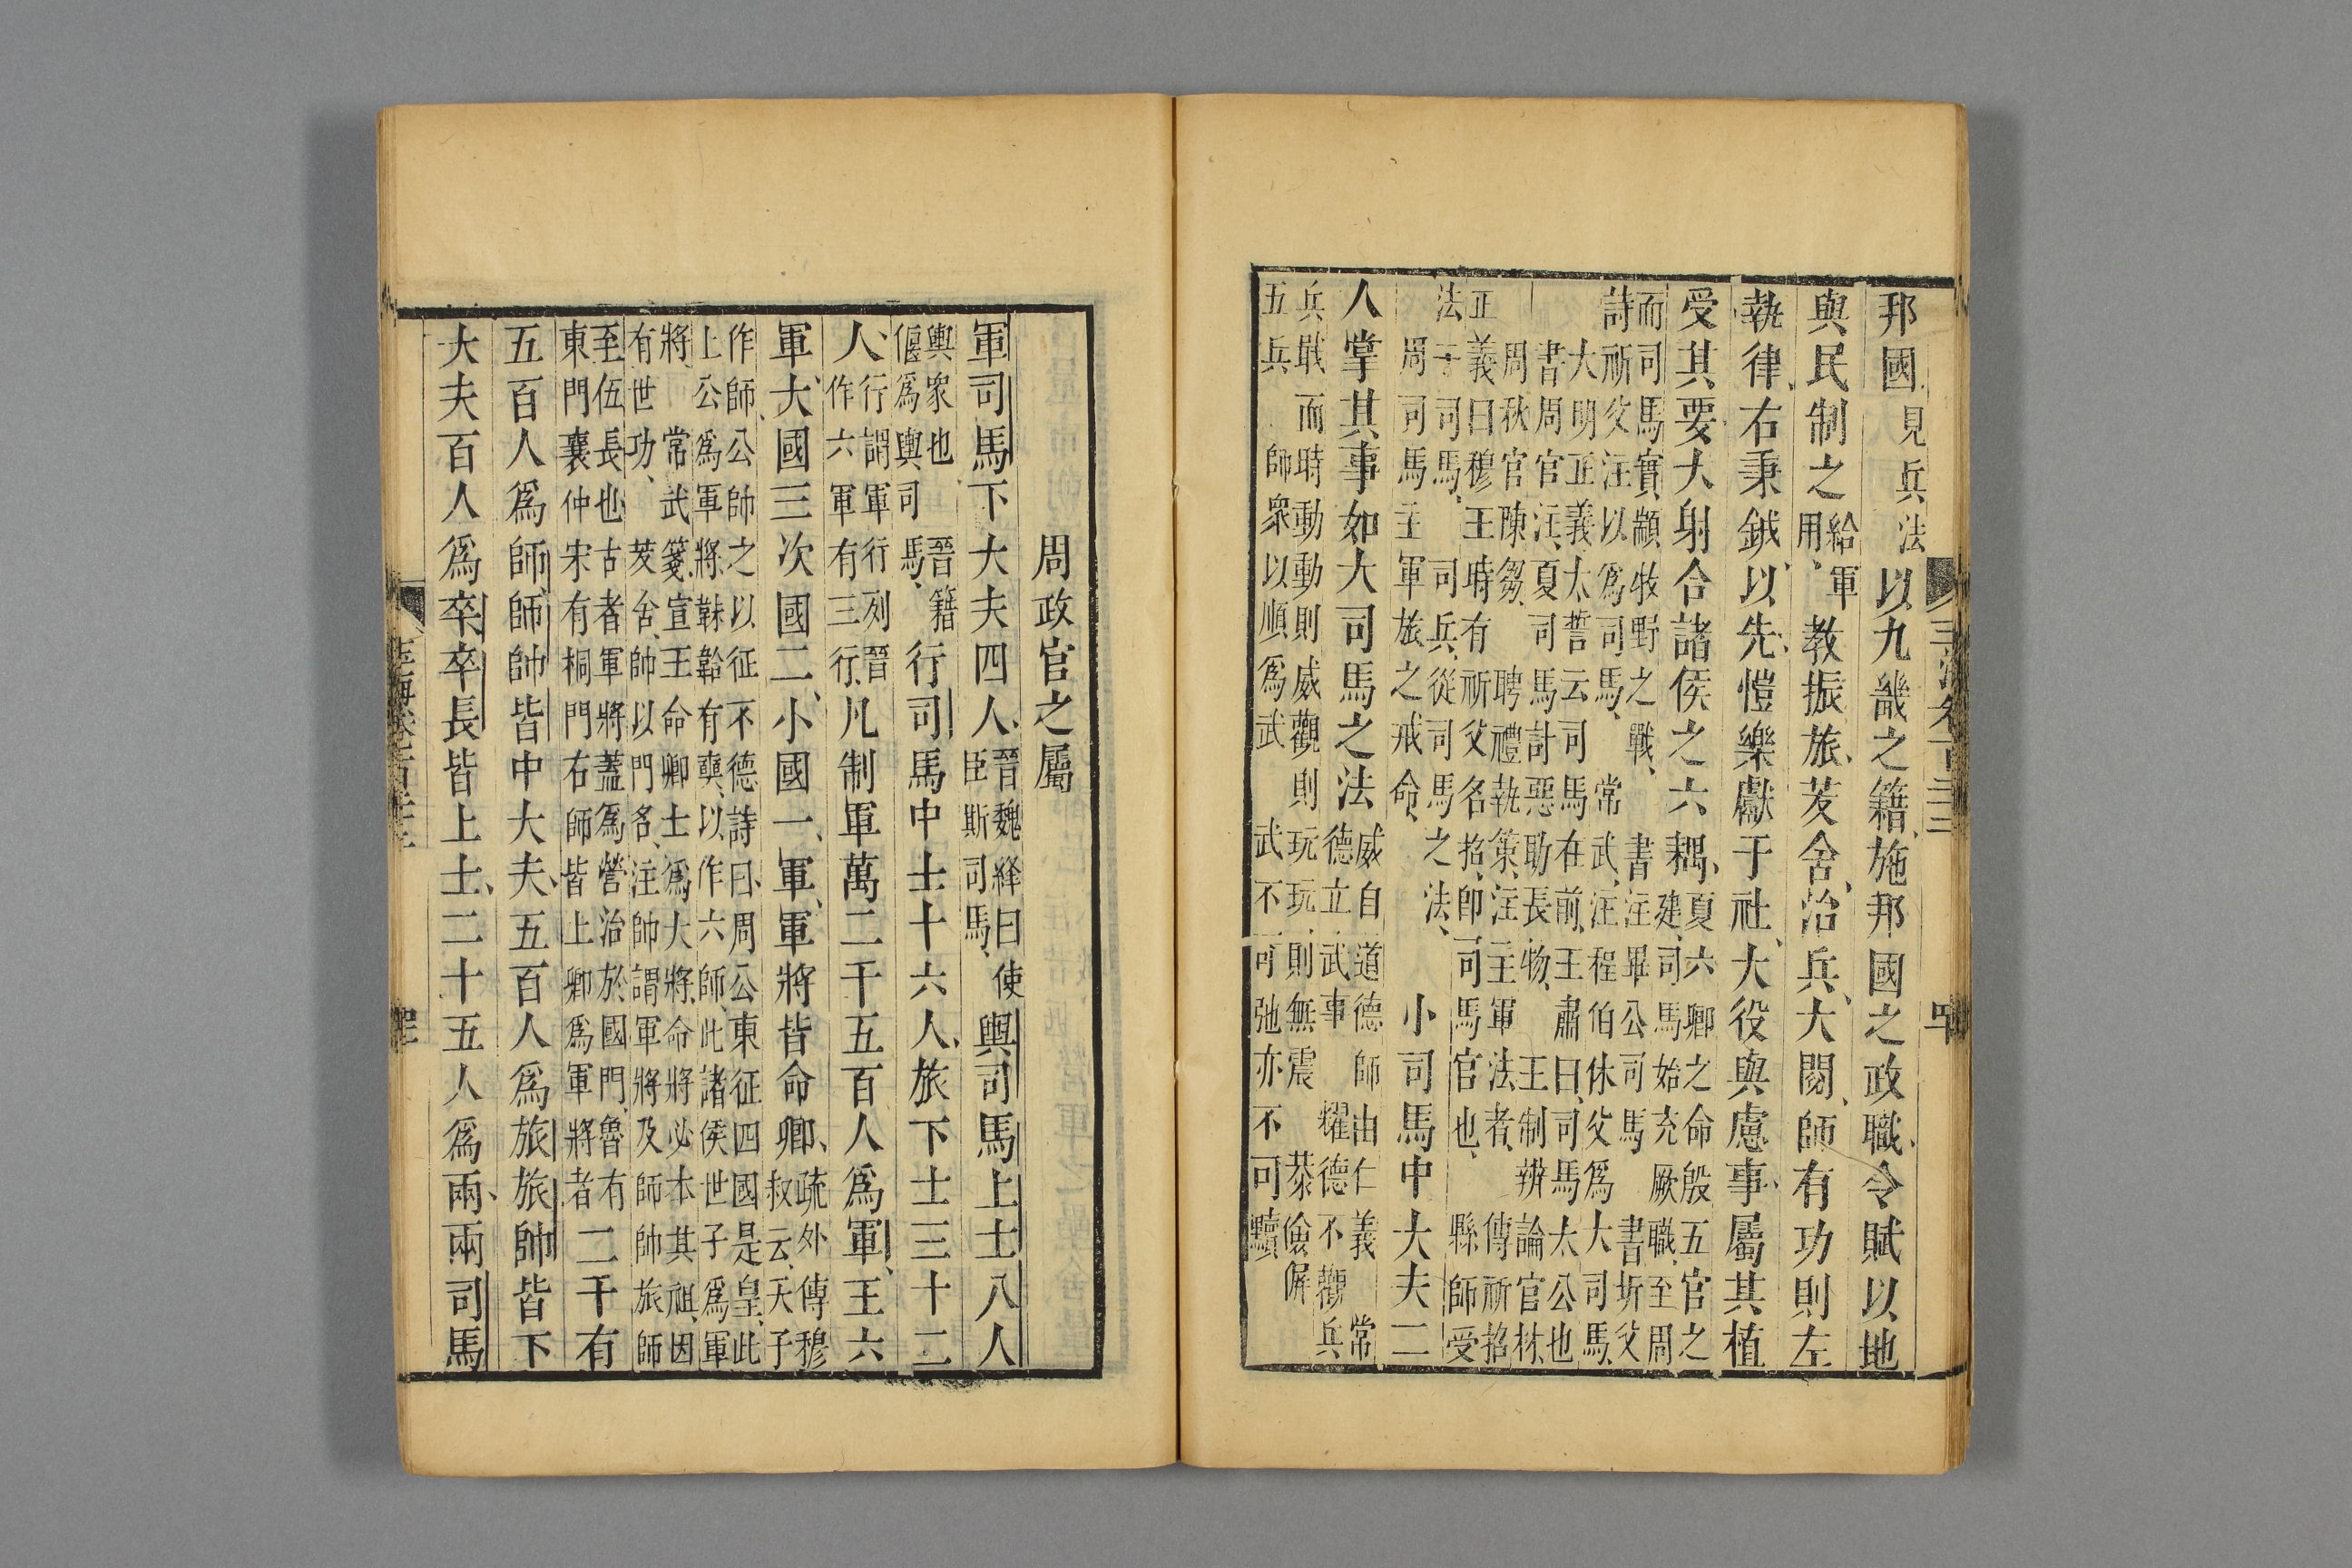 邦國見兵法以九畿之籍施邦國之政職令賦以地
與民制之給軍用教振旅茇舍治兵大閱師有功則左
執律右秉鉞以先愷樂獻于社大役與慮事屬其植
受其要大射合諸侯之六耦夏六卿之命殷五官之
建司馬始充厥職至周
而司馬實顓牧野之戰書注畢公司馬書圻父
詩祈父注以爲司馬常武注程伯休父爲大司馬
大明正義太誓云司馬在前王肅曰司馬太公也
書周官注夏司馬討惡助長物王制辨論官材
周秋官陳芻聘禮執策注主軍法者傳祈招
正義曰穆王時有祈父名招即司馬官也縣師受
法于司馬司兵從司馬之法
周司馬主軍旅之戒命小司馬中大夫二
人掌其事如大司馬之法威自道德師由仁義常
德立武事耀德不觀兵
兵戢而時動動則威觀則玩玩則無震恭儉偃
五兵師衆以順爲武武不可弛亦不可黷
周政官之屬
軍司馬下大夫四人晉魏絳曰使臣斯司馬輿司馬上士八人
輿衆也晉籍偃爲輿司馬行司馬中士十六人旅下士三十二
人行謂軍行列晉作六軍有三行凡制軍萬二千五百人爲軍王六
軍大國三次國二小國一軍軍將皆命卿疏外傳穆叔云天子
作師公帥之以征不德詩曰周公東征四國是皇此
上公爲軍將韎韐有奭以作六師此諸侯世子爲軍
將常武箋宣王命卿士爲大將命將必本其祖因
有世功茇舍帥以門名注帥謂軍將及師帥旅師
至伍長也古者軍將蓋爲營治於國門魯有
東門襄仲宋有桐門右師皆上卿爲軍將者二千有
五百人爲師師帥皆中大夫五百人爲旅旅帥皆下
大夫百人爲卒卒長皆上士二十五人爲兩兩司馬